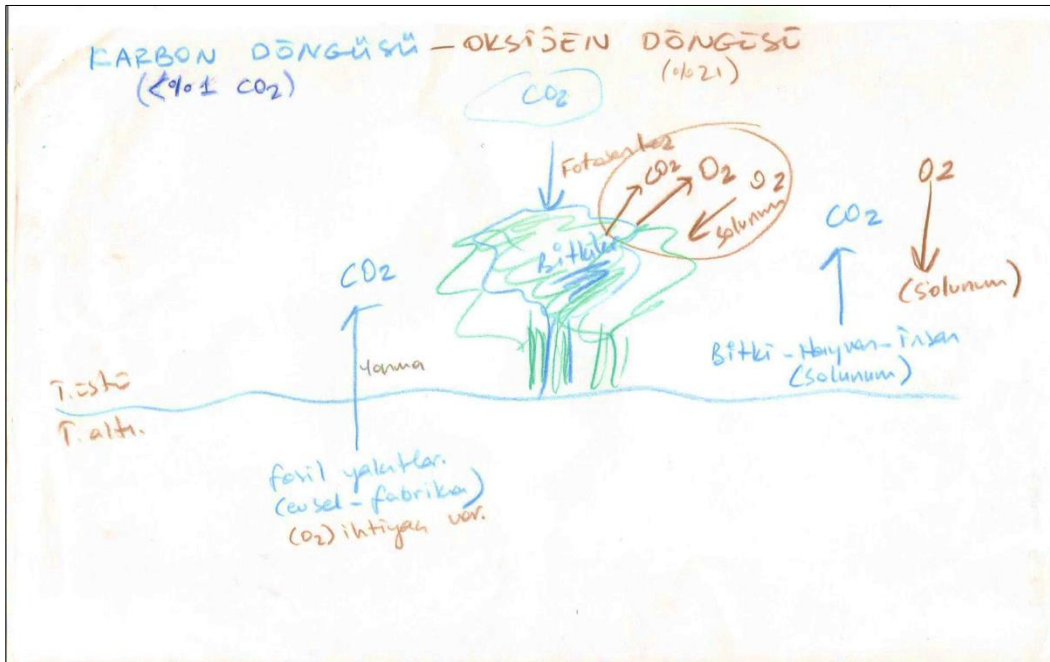 KARBON DÖNGÜSÜ – OKSİJEN DÖNGÜSÜ
(<%1 CO2)
(%21)
CO2
Fotosentez
CO2 O2 O2
solunum
Bitkiler
CO2
Yanma
CO2
O2
(solunum)
Bitki – Hayvan – insan
(solunum)
T. üstü
T. altı.
fosil yakıtlar.
(evsel – fabrika)
(O2) ihtiyacı var.